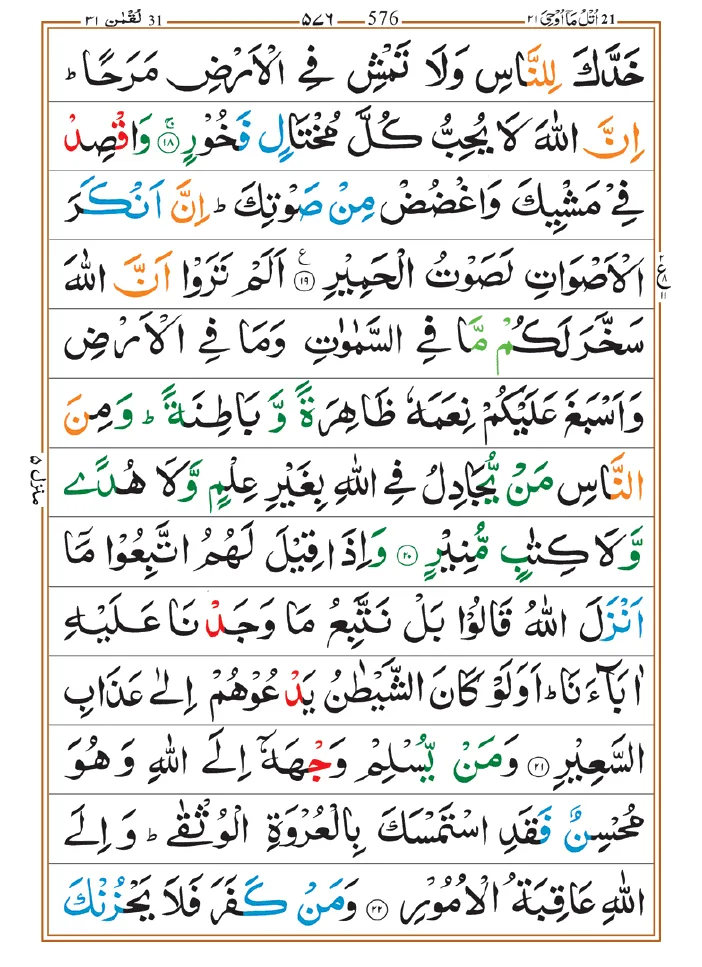 21 اُتْلُ مَآ اُوْحِیَ ۲۱ 576 ۵۷۶ 31 لُقْمٰن ۳۱
خَدَّكَ لِلنَّاسِ وَلَا تَمْشِ فِي الْاَرْضِ مَرَحًا ؕ
اِنَّ اللّٰهَ لَا يُحِبُّ كُلَّ مُخْتَالٍ فَخُوْرٍ ۚ‏ ۱۸ وَاقْصِدْ
فِيْ مَشْيِكَ وَاغْضُضْ مِنْ صَوْتِكَ ؕ اِنَّ اَنْكَرَ
الْاَصْوَاتِ لَصَوْتُ الْحَمِيْرِ ۱۹ ع اَلَمْ تَرَوْا اَنَّ اللّٰهَ
سَخَّرَ لَكُمْ مَّا فِي السَّمٰوٰتِ وَمَا فِي الْاَرْضِ
وَاَسْبَغَ عَلَيْكُمْ نِعَمَهٗ ظَاهِرَةً وَّ بَاطِنَةً ؕ وَمِنَ
النَّاسِ مَنْ يُّجَادِلُ فِي اللّٰهِ بِغَيْرِ عِلْمٍ وَّلَا هُدًى
وَّلَا كِتٰبٍ مُّنِيْرٍ ۲۰ وَاِذَا قِيْلَ لَهُمُ اتَّبِعُوْا مَآ
اَنْزَلَ اللّٰهُ قَالُوْا بَلْ نَتَّبِعُ مَا وَجَدْنَا عَلَيْهِ
اٰبَآءَنَا ؕ اَوَلَوْ كَانَ الشَّيْطٰنُ يَدْعُوْهُمْ اِلٰى عَذَابِ
السَّعِيْرِ ۲۱ وَمَنْ يُّسْلِمْ وَجْهَهٗٓ اِلَى اللّٰهِ وَهُوَ
مُحْسِنٌ فَقَدِ اسْتَمْسَكَ بِالْعُرْوَةِ الْوُثْقٰى ؕ وَاِلَى
اللّٰهِ عَاقِبَةُ الْاُمُوْرِ ۲۲ وَمَنْ كَفَرَ فَلَا يَحْزُنْكَ
۲
ع ۸
۱۱
منزل ۵